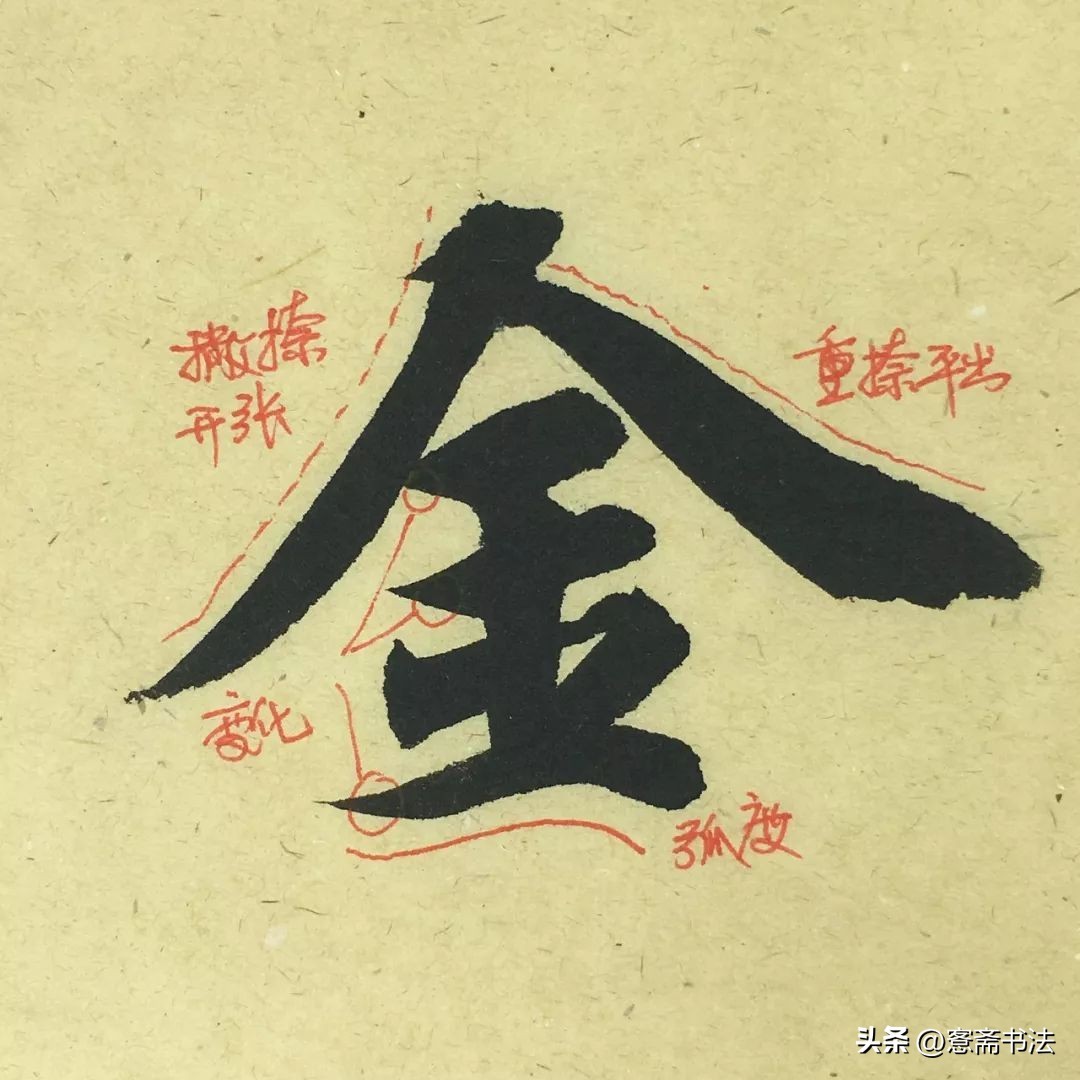 金
撇捺
开张
重捺平出
变化
弧度
头条 @窓斋书法